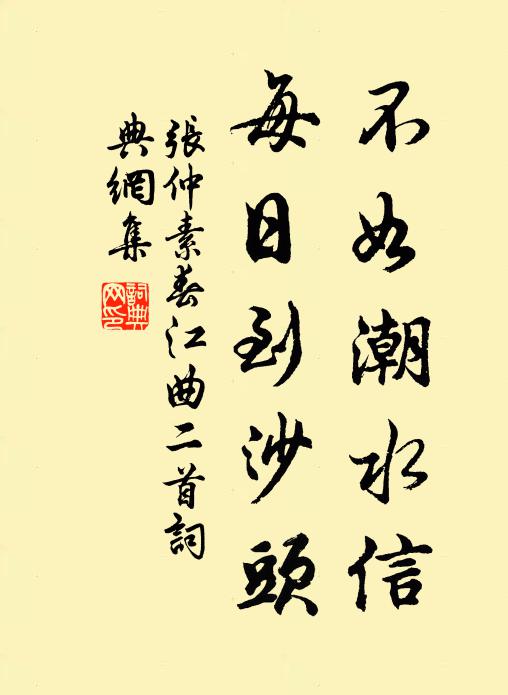 不如潮水信
每日到沙頭
張仲素春江曲二首詞
典網集
詞典
网印